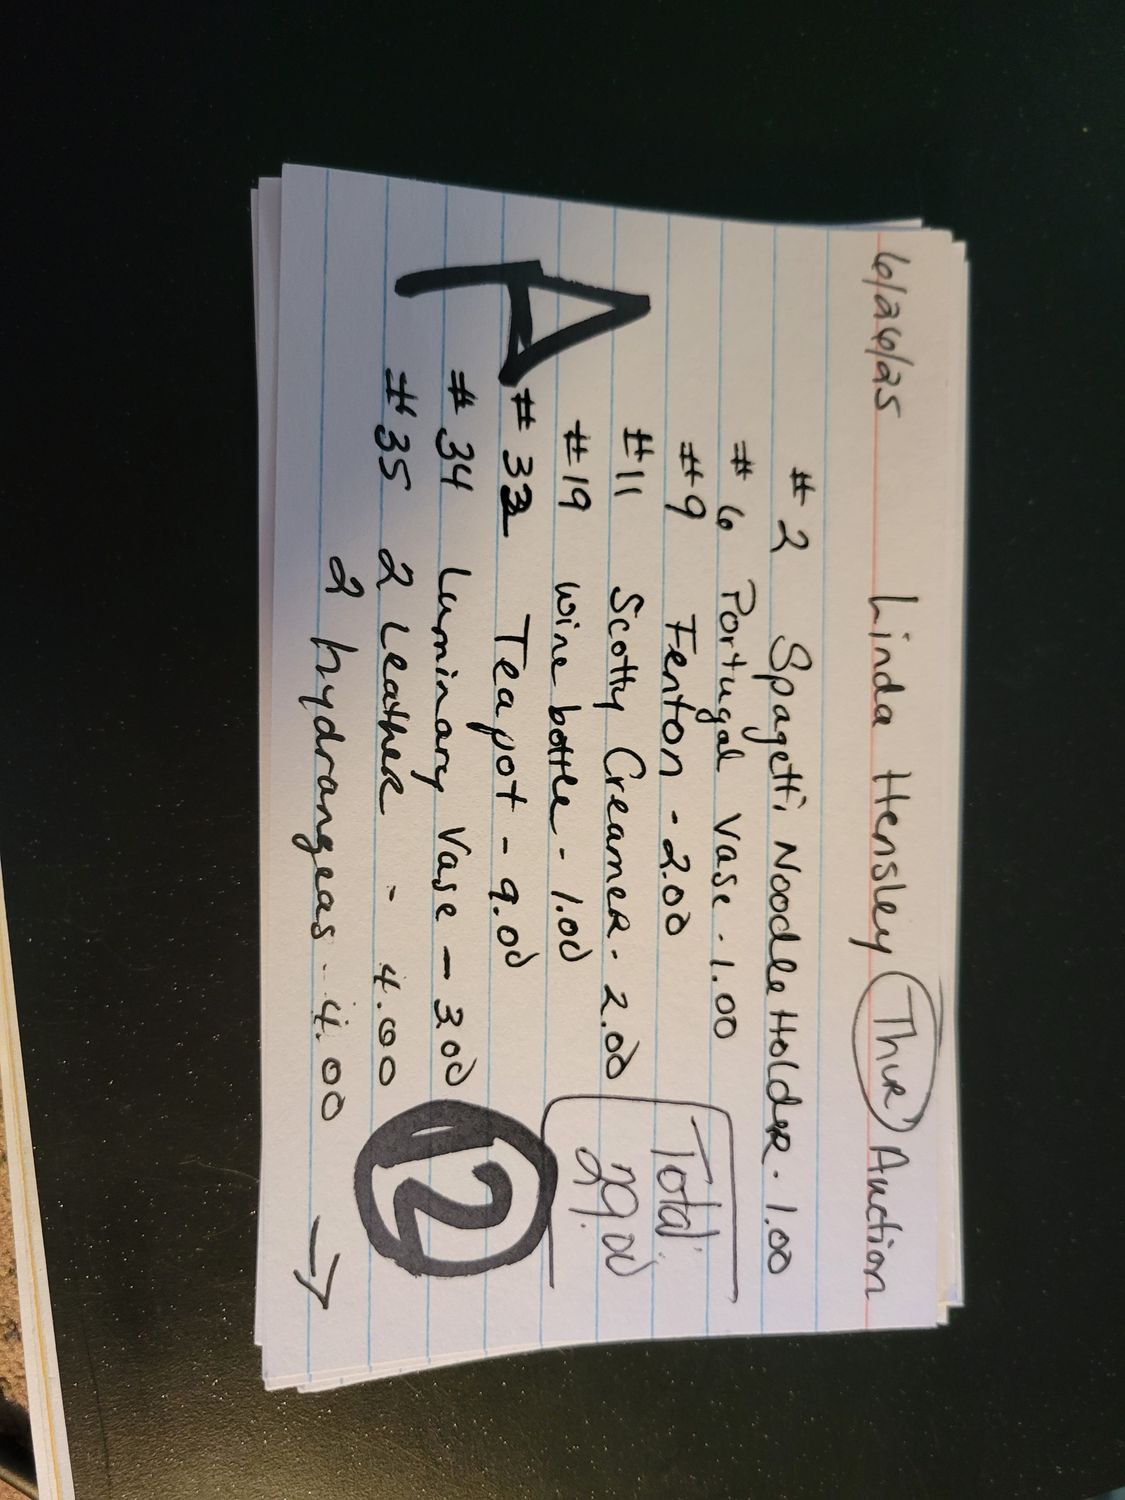 6/26/25 Linda Hensley (Thur) Auction
# 2 Spagetti Noodle Holder . 1.00
# 6 Portugal Vase . 1.00
#9 Fenton - 2.00
#11 Scotty Creamer - 2.00
#19 wine bottle - 1.00
# 33 Teapot - 9.00
# 34 Luminary Vase - 3.00
#35 2 Leather - 4.00
2 hydrangeas - 4.00 →
A
Total:
29.00
2